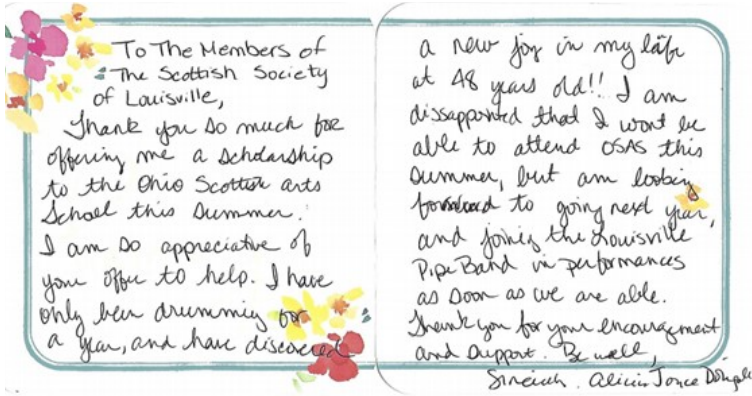 To The Members of
The Scottish Society
of Louisville,
Thank you so much for
offering me a scholarship
to the Ohio Scottish arts
School this summer.
I am so appreciative of
your offer to help. I have
only been drumming for
a year, and have discovered
a new joy in my life
at 48 years old!! I am
dissappointed that I wont be
able to attend OSAS this
summer, but am looking
forward to going next year,
and joining the Louisville
Pipe Band in performances
as soon as we are able.
Thank you for your encouragement
and support. Be well,
Alicia Joyce